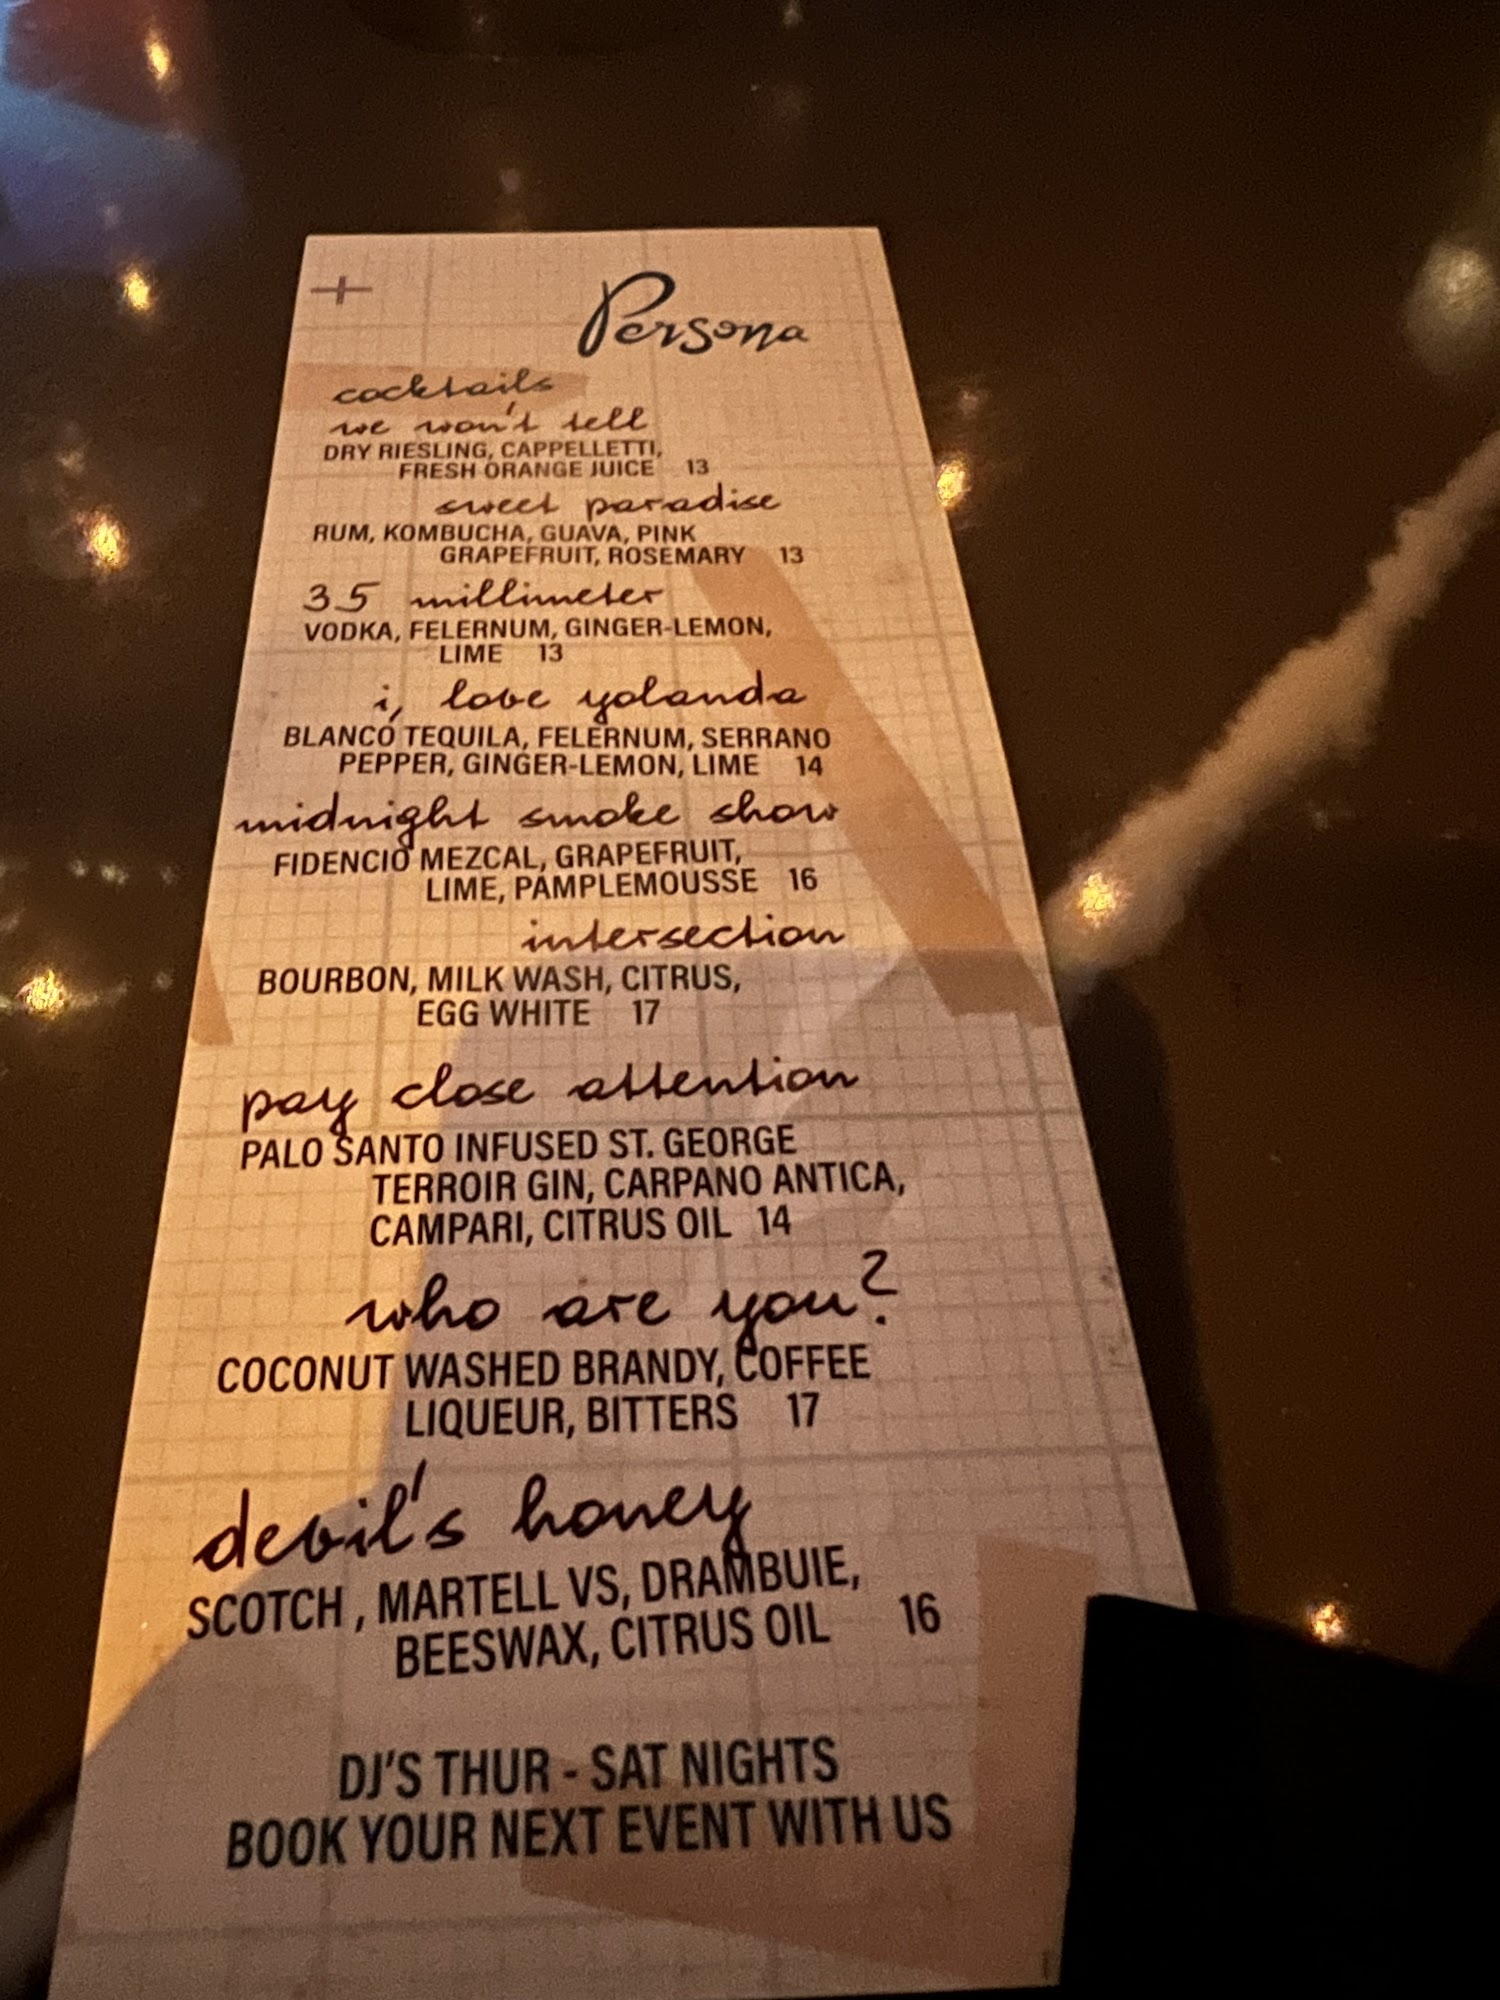 Persona
cocktails
we won't tell
DRY RIESLING, CAPPELLETTI,
FRESH ORANGE JUICE 13
sweet paradise
RUM, KOMBUCHA, GUAVA, PINK
GRAPEFRUIT, ROSEMARY 13
35 millimeter
VODKA, FELERNUM, GINGER-LEMON,
LIME 13
i, love yolanda
BLANCO TEQUILA, FELERNUM, SERRANO
PEPPER, GINGER-LEMON, LIME 14
midnight smoke show
FIDENCIO MEZCAL, GRAPEFRUIT,
LIME, PAMPLEMOUSSE 16
intersection
BOURBON, MILK WASH, CITRUS,
EGG WHITE 17
pay close attention
PALO SANTO INFUSED ST. GEORGE
TERROIR GIN, CARPANO ANTICA,
CAMPARI, CITRUS OIL 14
who are you?
COCONUT WASHED BRANDY, COFFEE
LIQUEUR, BITTERS 17
devil's honey
SCOTCH , MARTELL VS, DRAMBUIE,
BEESWAX, CITRUS OIL 16
DJ'S THUR - SAT NIGHTS
BOOK YOUR NEXT EVENT WITH US